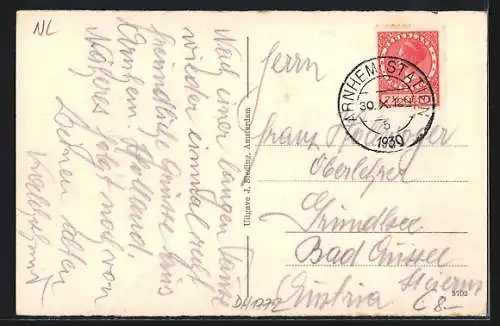 NL
Nach einer langen Pause
wieder einmal recht
freundliche Grüsse aus
Arnhem. Holland.
Näheres folgt noch von
Deinem alten
Uitgave J. Sleding, Amsterdam
ARNHEM-STATION
30.X.
5
1930
NEDERLAND
Herrn
Franz
Oberlehrer
Grundlsee
Bad Aussee
Steierm
Austria
DH1772
8703
€ 8.-